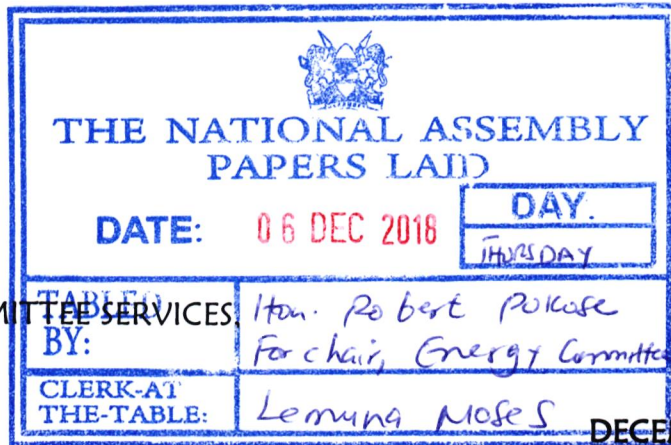 THE NATIONAL ASSEMBLY
PAPERS LAID
DATE: 06 DEC 2018
DAY.
THURSDAY
TABLED
BY:
MITTEE SERVICES,
Hon. Robert Pukose
For chair, Energy Committee
CLERK-AT
THE-TABLE:
Lemuna Moses
DECE